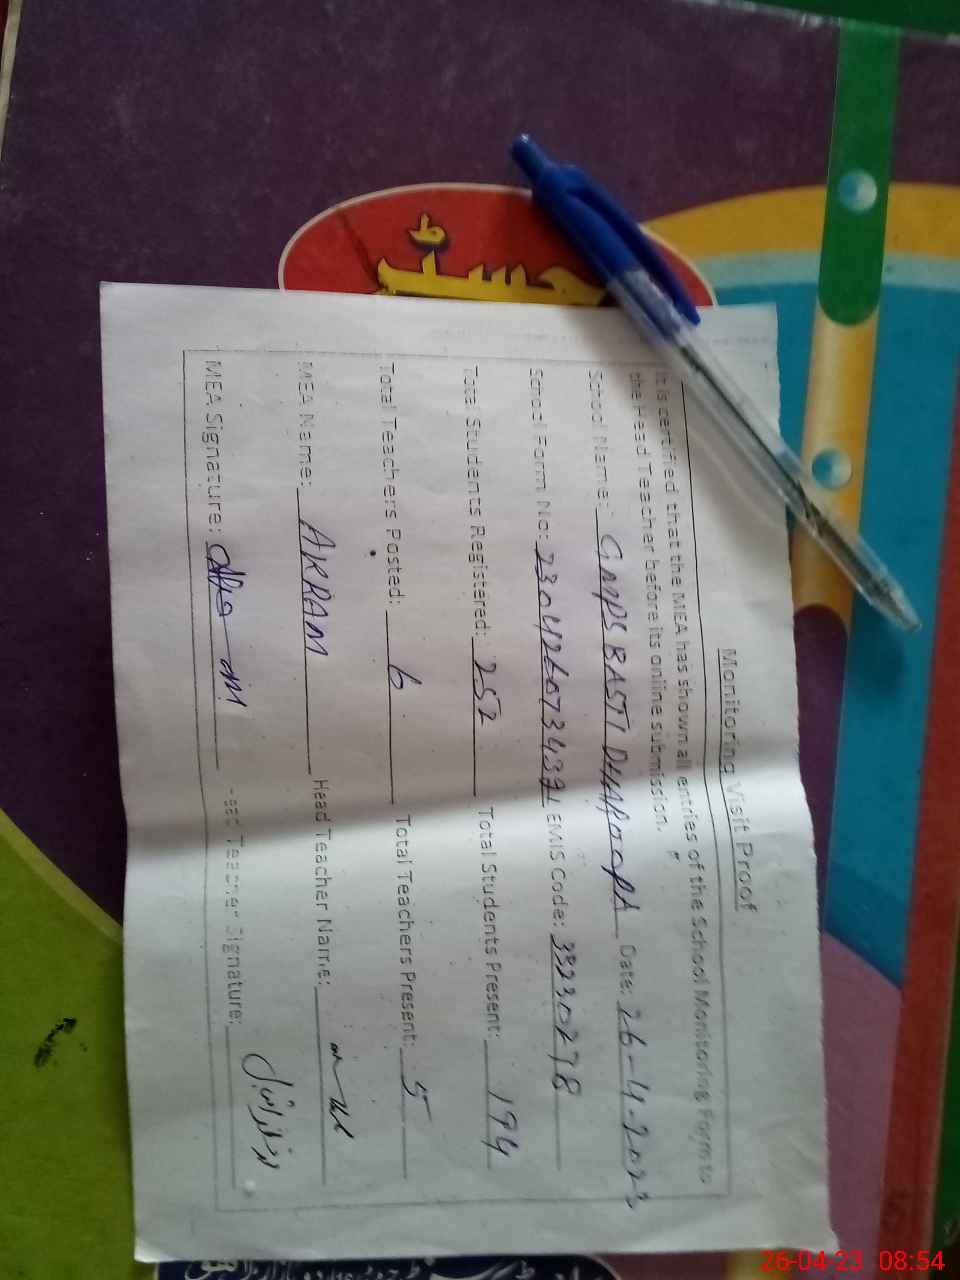 حسیب
Monitoring Visit Proof
It is certified that the MEA has shown all entries of the School Monitoring Form to
the Head Teacher before its online submission.
School Name: GMPS BASTI DHAROOPA Date: 26-4-2023
School Form No: EMIS Code:
Total Students Registered: 252 Total Students Present: 194
Total Teachers Posted: 6 Total Teachers Present: 5
MEA Name: AKRAM Head Teacher Name:
MEA Signature: Head Teacher Signature:
26-04-23 08:54